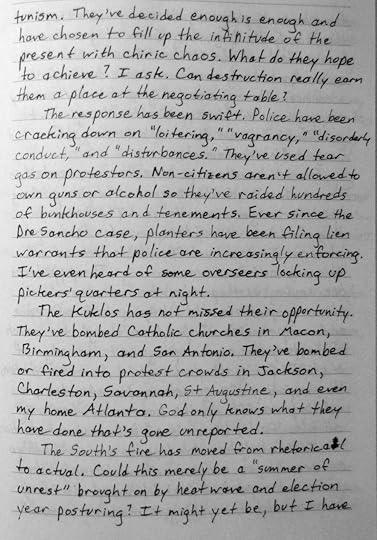 tunism. They've decided enough is enough and
have chosen to fill up the infinitude of the
present with chiric chaos. What do they hope
to achieve? I ask. Can destruction really earn
them a place at the negotiating table?
The response has been swift. Police have been
cracking down on "loitering," "vagrancy," "disorderly
conduct," and "disturbances." They've used tear
gas on protestors. Non-citizens aren't allowed to
own guns or alcohol so they've raided hundreds
of bunkhouses and tenements. Ever since the
Dre Sancho case, planters have been filing lien
warrants that police are increasingly enforcing.
I've even heard of some overseers locking up
pickers' quarters at night.
The Kuklos has not missed their opportunity.
They've bombed Catholic churches in Macon,
Birmingham, and San Antonio. They've bombed
or fired into protest crowds in Jackson,
Charleston, Savannah, St Augustine, and even
my home Atlanta. God only knows what they
have done that's gone unreported.
The South's fire has moved from rhetorical
to actual. Could this merely be a "summer of
unrest" brought on by heatwave and election
year posturing? It might yet be, but I have